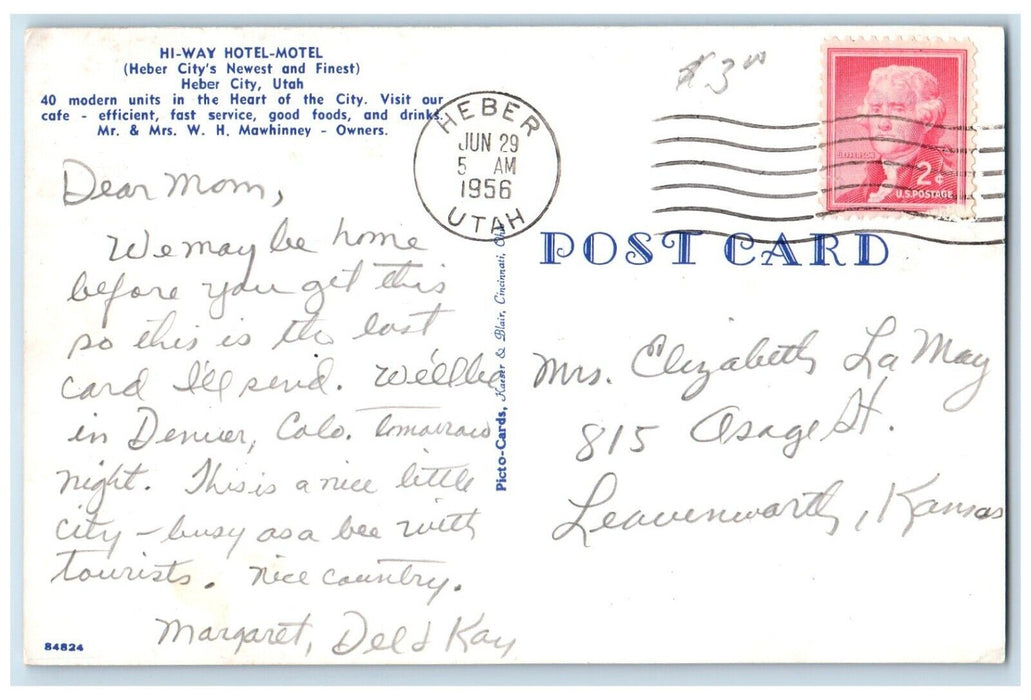 HI-WAY HOTEL-MOTEL
(Heber City's Newest and Finest)
Heber City, Utah
40 modern units in the Heart of the City. Visit our
cafe - efficient, fast service, good foods, and drinks.
Mr. & Mrs. W. H. Mawhinney - Owners.
HEBER
JUN 29
5 AM
1956
UTAH
$3.00
2¢
U.S. POSTAGE
POST CARD
Dear Mom,
We may be home
before you get this
so this is the last
card I'll send. We'll be
in Denver, Colo. tomorrow
night. This is a nice little
city - busy as a bee with
tourists. Nice country.
Margaret, Del & Kay
Picto-Cards, Kaeser & Blair, Cincinnati,
Mrs. Elizabeth La May
815 Osage St.
Leavenworth, Kansas
84824